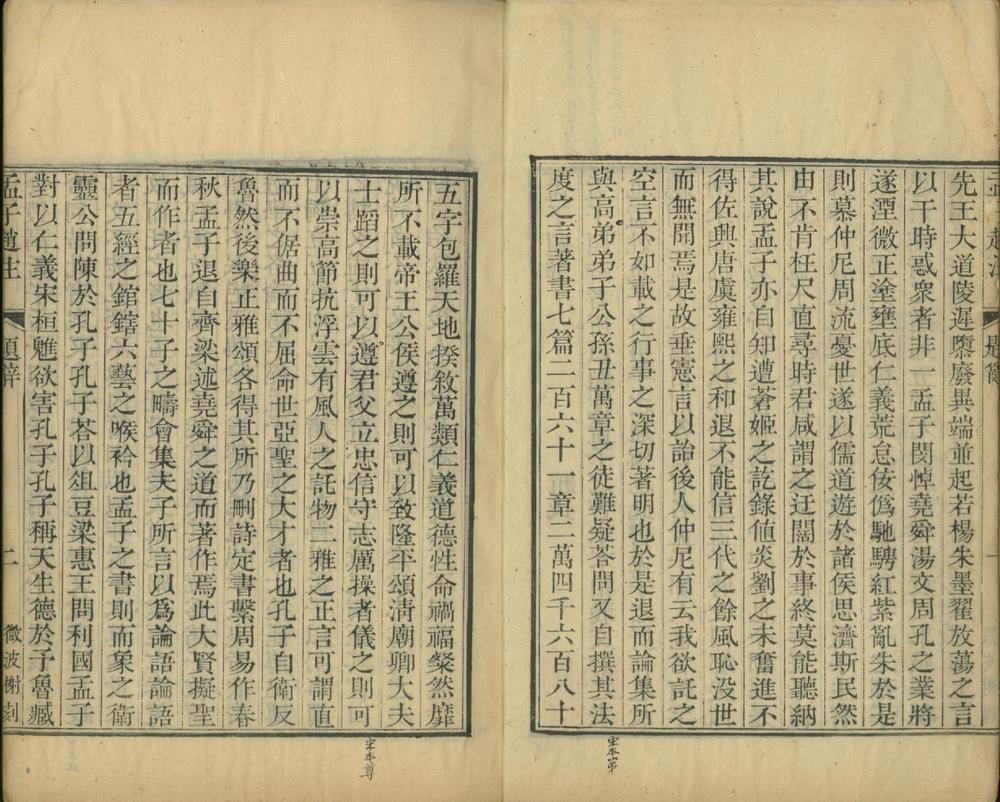 先王大道陵遲隳廢異端並起若楊朱墨翟放蕩之言
以干時惑衆者非一孟子閔悼堯舜湯文周孔之業將
遂湮微正塗壅底仁義荒怠佞僞馳騁紅紫亂朱於是
則慕仲尼周流憂世遂以儒道遊於諸侯思濟斯民然
由不肯枉尺直尋時君咸謂之迂闊於事終莫能聽納
其說孟子亦自知遭蒼姬之訖錄値炎劉之未奮進不
得佐興唐虞雍熙之和退不能信三代之餘風恥没世
而無聞焉是故垂憲言以詒後人仲尼有云我欲託之
空言不如載之行事之深切著明也於是退而論集所
與高弟弟子公孫丑萬章之徒難疑荅問又自撰其法
度之言著書七篇二百六十一章二萬四千六百八十
宋本第
五字包羅天地揆敘萬類仁義道德性命禍福粲然靡
所不載帝王公侯遵之則可以致隆平頌清廟卿大夫
士蹈之則可以遵君父立忠信守志厲操者儀之則可
以崇高節抗浮雲有風人之託物二雅之正言可謂直
而不倨曲而不屈命世亞聖之大才者也孔子自衛反
魯然後樂正雅頌各得其所乃刪詩定書繫周易作春
秋孟子退自齊梁述堯舜之道而著作焉此大賢擬聖
而作者也七十子之疇會集夫子所言以爲論語論語
者五經之錧鎋六藝之喉衿也孟子之書則而象之衛
靈公問陳於孔子孔子荅以俎豆梁惠王問利國孟子
對以仁義宋桓魋欲害孔子孔子稱天生德於予魯臧
宋本尊
孟子趙注 題辭 二 微波榭刻